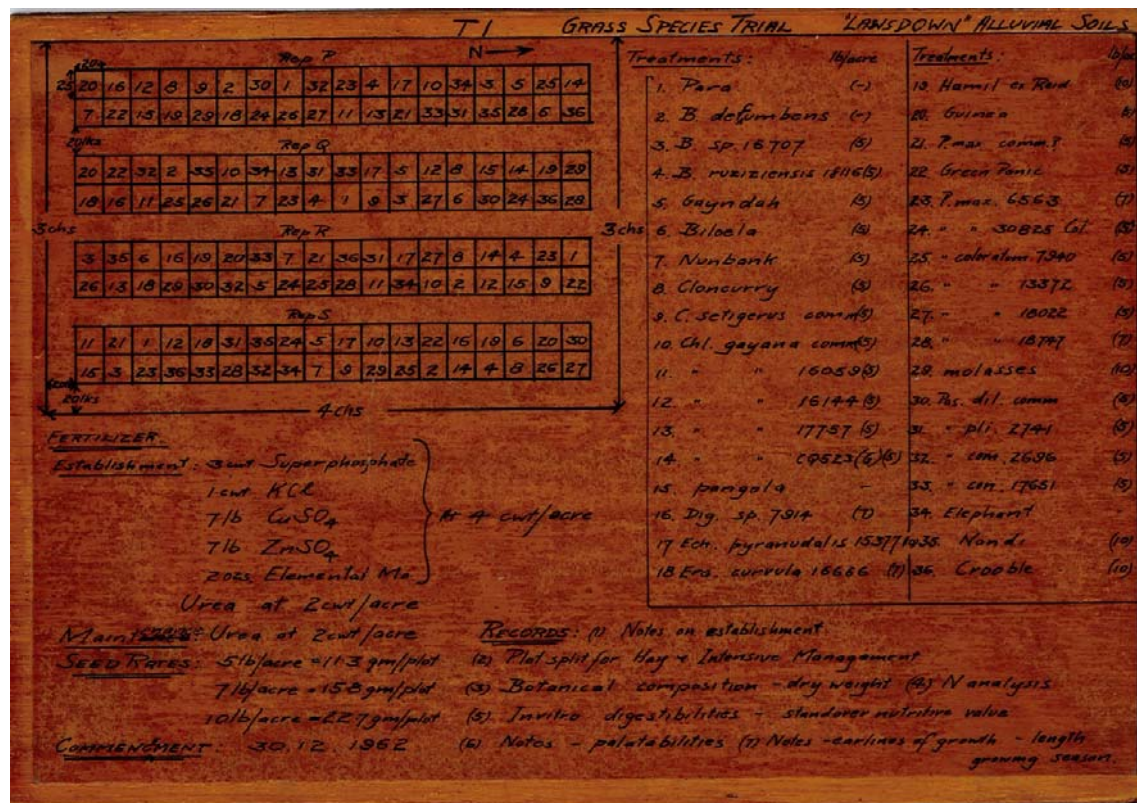 T1 GRASS SPECIES TRIAL "LANSDOWN" ALLUVIAL SOILS
N
Rep P
20 16 12 8 9 2 30 1 32 23 4 17 10 34 3 5 25 14
7 22 15 19 29 18 24 26 27 11 13 21 33 31 35 28 6 36
20lks
Rep Q
20 22 32 2 35 10 34 13 31 33 17 5 12 8 15 14 19 29
18 16 11 25 26 21 7 23 4 1 9 3 27 6 30 24 36 28
3chs
3chs
Rep R
3 35 6 16 19 20 33 7 21 36 31 17 27 8 14 4 23 1
26 13 18 29 30 32 5 24 25 28 11 34 10 2 12 15 9 22
Rep S
11 21 1 12 18 31 35 24 5 17 10 13 22 16 19 6 20 30
15 3 23 36 33 28 32 34 7 9 29 25 2 14 4 8 26 27
20lks
4chs
Treatments: lb/acre
1. Para (-)
2. B. decumbens (-)
3. B. sp. 16707 (5)
4. B. ruziziensis 18116 (5)
5. Gayndah (5)
6. Biloela (5)
7. Nunbank (5)
8. Cloncurry (5)
9. C. setigerus comm (5)
10. Chl. gayana comm (5)
11. " " 16059 (5)
12. " " 16144 (5)
13. " " 17757 (5)
14. " " CQ523 (5)
15. pangola -
16. Dig. sp. 7914 (7)
17 Ech. pyramidalis 15377
18 Erg. curvula 16666 (7)
Treatments:
19. Hamil ex Reid (10)
20. Guinea
21. P. max. comm? (5)
22. Green Panic (5)
23. P. max. 6563 (7)
24. " " 30825 Col (5)
25. " coloratum 7940 (5)
26. " " 13372 (5)
27. " " 18022 (5)
28. " " 18747 (7)
29. molasses (10)
30. Pas. dil. comm
31. " pli. 2741 (5)
32. " com. 2696 (5)
33. " con. 17651 (5)
34. Elephant
35. Nandi (10)
36. Crooble (10)
FERTILIZER.
Establishment: 3 cwt Superphosphate
1 cwt KCl
7 lb CuSO4
7 lb ZnSO4
2 ozs. Elemental Mo
At 4 cwt/acre
Urea at 2cwt/acre
Urea at 2cwt/acre
SEED RATES: 5lb/acre = 11.3 gm/plot
7lb/acre = 15.8 gm/plot
10lb/acre = 22.7 gm/plot
COMMENCMENT: 30.12.1962
RECORDS: (1) Notes on establishment
(2) Plot split for Hay + Intensive Management
(3) Botanical composition - dry weight (4) N analysis
(5) Invitro digestibilities - standover nutritive value
(6) Notes - palatabilities (7) Notes - earlines of growth - length
growing season.